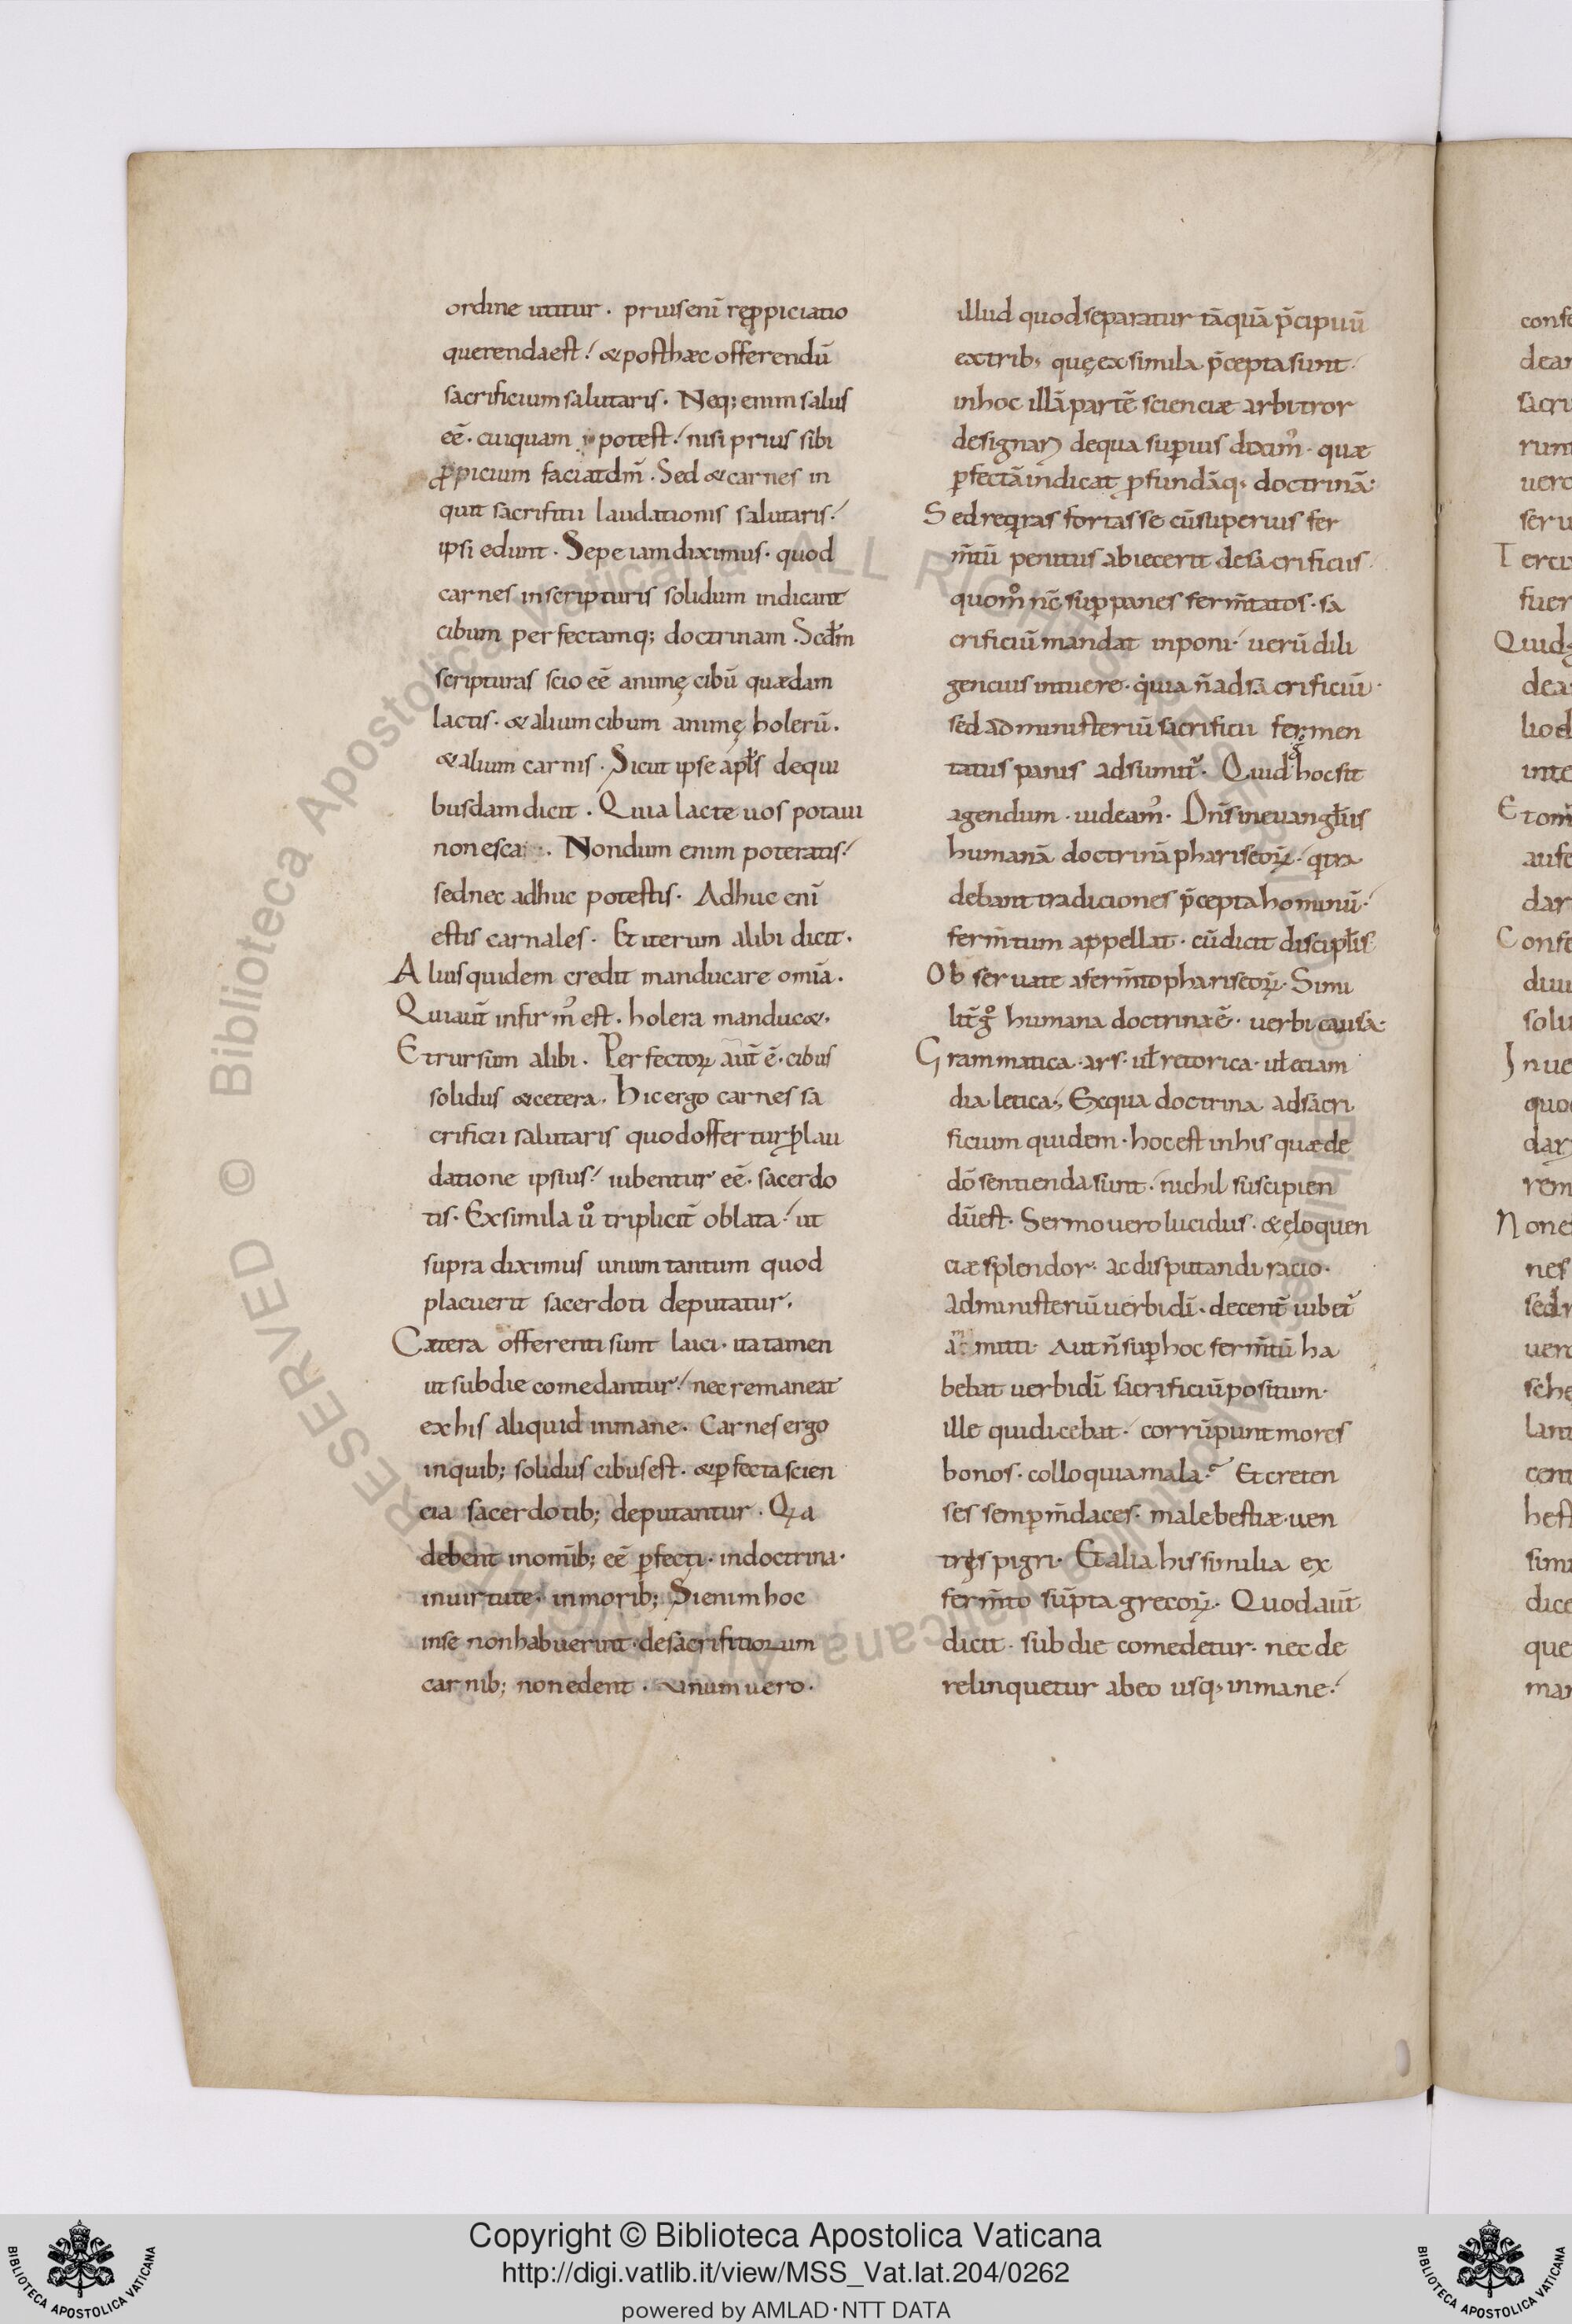 ordine utitur · prius enī rep̱piciatio
querenda est · & post hæc offerendū
sacrificium salutaris · Neq; enim salus
eē · cuiquam potest · nisi prius sibi
ꝓpicium faciat dm̄ · Sed & carnes in
quit sacrifitii laudationis salutaris ·
ipsi edunt · Sepe iam diximus · quod
carnes in scripturis solidum indicant
cibum perfectamq; doctrinam · Scdm̄
scripturas scio eē animę cibū quædam
lactis · & alium cibum animę holerū ·
& alium carnis · Sicut ipse apłs de qui
busdam dicit · Quia lacte uos potaui
non esca · Nondum enim poteratis ·
sed nec adhuc potestis · Adhuc enī
estis carnales · Et iterum alibi dicit ·
Alius quidem credit manducare om̄ia ·
Qui aut̄ infirm᾿ est · holera manducæ ·
Et rursum alibi · Perfectoꝝ aut̄ ē · cibus
solidus & cetera · Hic ergo carnes sa
crificii salutaris quod offertur ꝓ lau
datione ipsius · iubentur eē · sacerdo
tis · Ex simila uº triplicit̄ oblata · ut
supra diximus unum tantum quod
placuerit sacerdoti deputatur ·
Cætera offerenti sunt laici · ita tamen
ut sub die comedantur · nec remaneat
ex his aliquid in mane · Carnes ergo
in quib; solidus cibus est · & ꝑfecta scien
cia sacerdotib; deputantur · Qꝛa
debent in om̄ib; eē ꝑfecti · in doctrina ·
in uirtute · in morib; Si enim hoc
in se non habuerint · de sacrifitiorum
carnib; non edent · & unum uero ·
illud quod separatur tāquā p̄cipuū
ex trib; quę ex simila p̄cepta sunt
in hoc illā partē scienciæ arbitror
designari de qua suꝑius dixim᾿ · quæ
ꝑfectā indicat ꝓfundāq; doctrinā ·
Sed reqͥras fortasse cū superius fer
m̄tū penitus abiecerit de sacrificiis ·
quomº nc̄ suꝑ panes ferm̄tatos · sa
crificiū mandat inponi · uerū dili
gencius intuere · qͥa n̄ ad sacrificiū ·
sed ad ministeriū sacrificii fermen
tatus panis adsumit᾿ · Quid & hoc sit
agendum · uideam᾿ · Dn̄s in euangłiis
humanā doctrinā phariseoꝝ · qͥ tra
debant tradiciones p̄cepta hominū ·
ferm̄tum appellat · cū dicit discipłis
Observate a ferm̄to phariseoꝝ · Simi
lit̄ gº humana doctrina ē · uerbi causa ·
Grammatica · ars · uł retorica · uł eciam
dialetica; Ex qua doctrina ad sacri
ficium quidem · hoc est in his quæ de
dō sentienda sunt · nichil suscipien
dū est · Sermo uero lucidus · & eloquen
ciæ splendor · ac disputandi racio ·
ad ministeriū uerbi dī · decent̄ iubet᾿
amitti · Aut n̄ suꝑ hoc ferm̄tū ha
bebat uerbi dī sacrificiū positum ·
ille qui dicebat · corrūpunt mores
bonos · colloquia mala · Et creten
ses semꝑ m̄daces · male bestiæ · uen
tres pigri · Et alia his similia ex
ferm̄to sūpta grecoꝝ · Quod aut̄
dicit · sub die comedetur · nec de
relinquetur ab eo usq; in mane ·
Copyright © Biblioteca Apostolica Vaticana
http://digi.vatlib.it/view/MSS_Vat.lat.204/0262
powered by AMLAD·NTT DATA